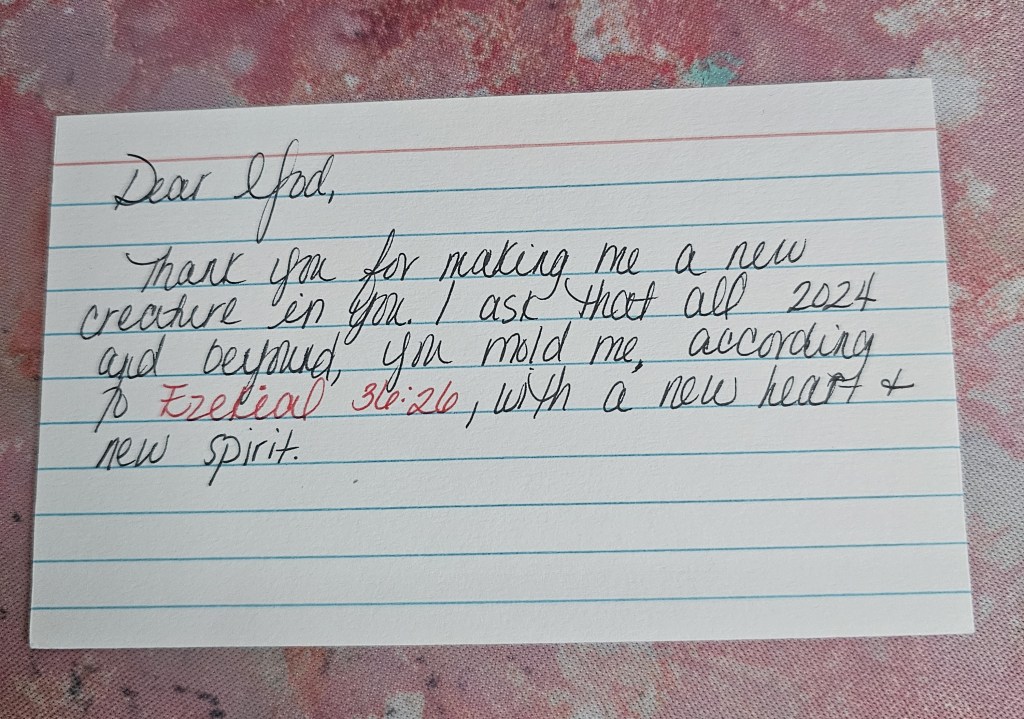 Dear God,
Thank you for making me a new
creature in you. I ask that all 2024
and beyond, you mold me, according
to Ezekial 36:26, with a new heart +
new spirit.